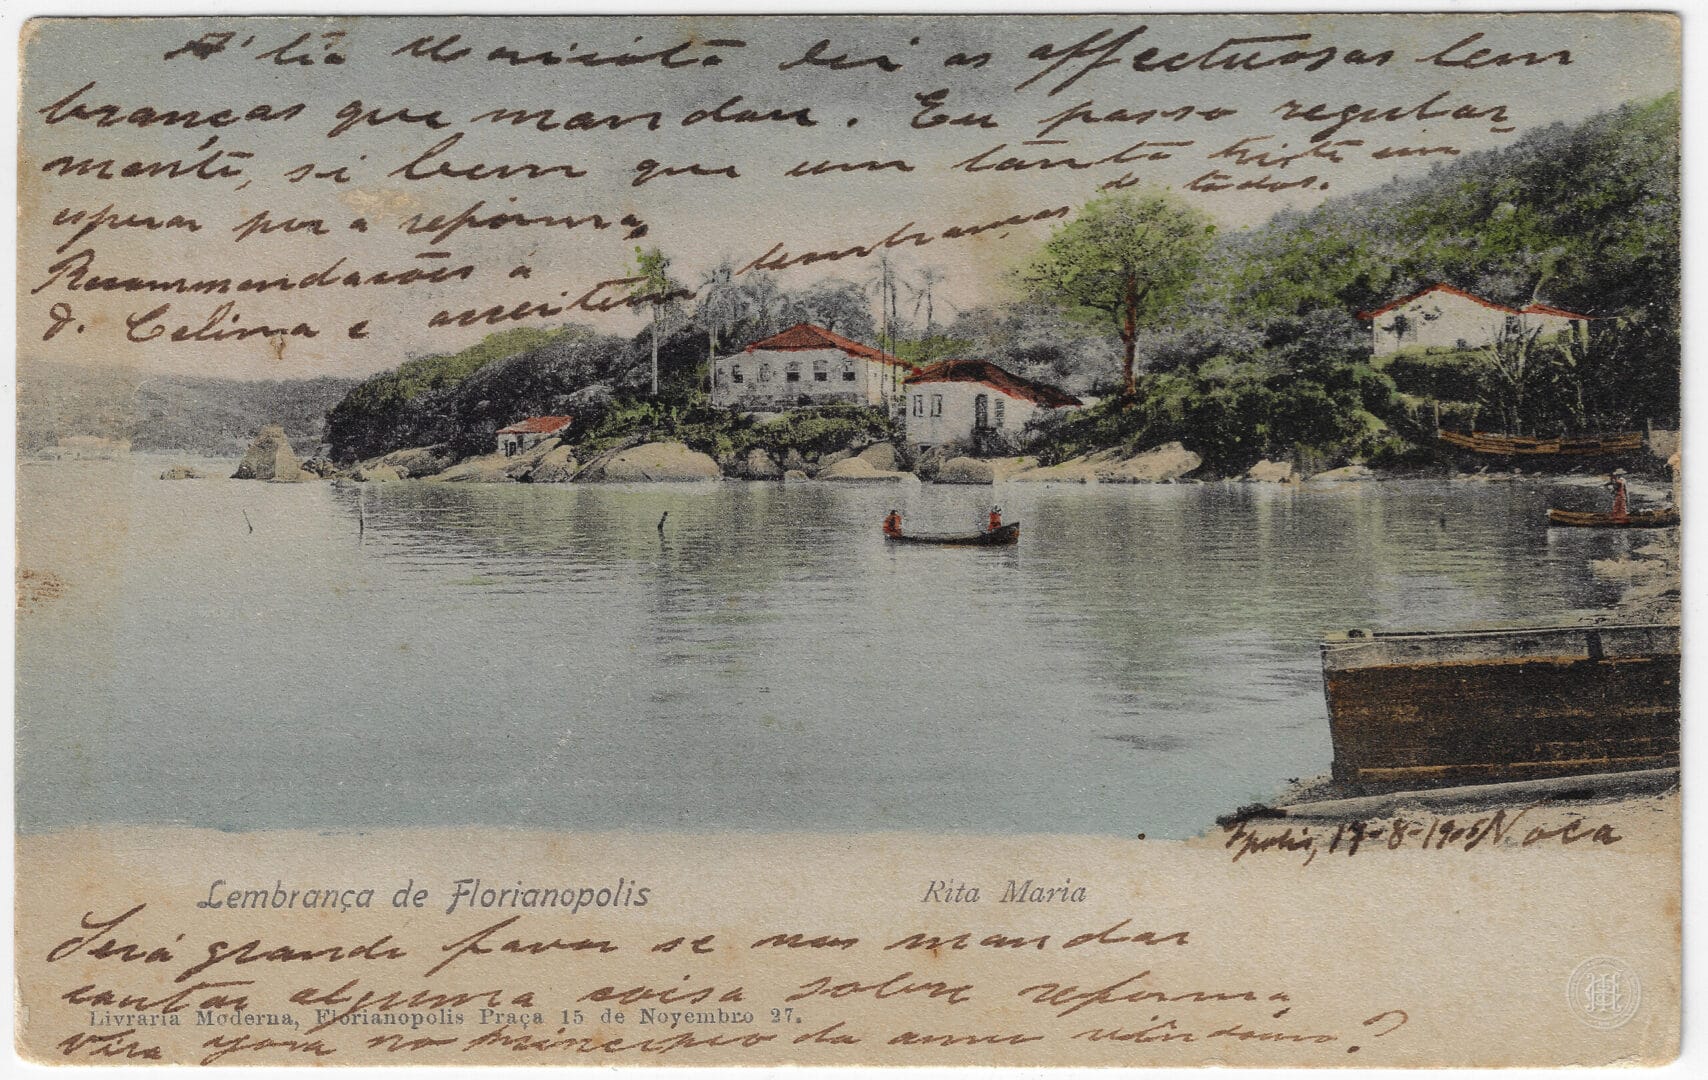 A' tia Maricota dei as affectuosas lem
branças que mandou. Eu passo regular
mente, si bem que um tanto triste em
esperar por a reforma.
Recommendações a
d. Celina e acceitem lembranças
de todos.
Fpolis, 17-8-1905 Noca
Lembrança de Florianopolis
Rita Maria
Será grande favor se nos mandar
contar alguma coisa sobre reforma
Livraria Moderna, Florianopolis Praça 15 de Novembro 27.
Virá agora no principio do anno vindouro?